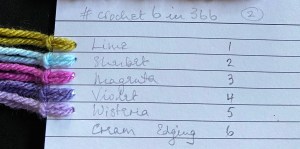 # crochet 6 in 366 2
Lime 1
Sherbet 2
Magenta 3
Violet 4
Wisteria 5
Cream Edging 6